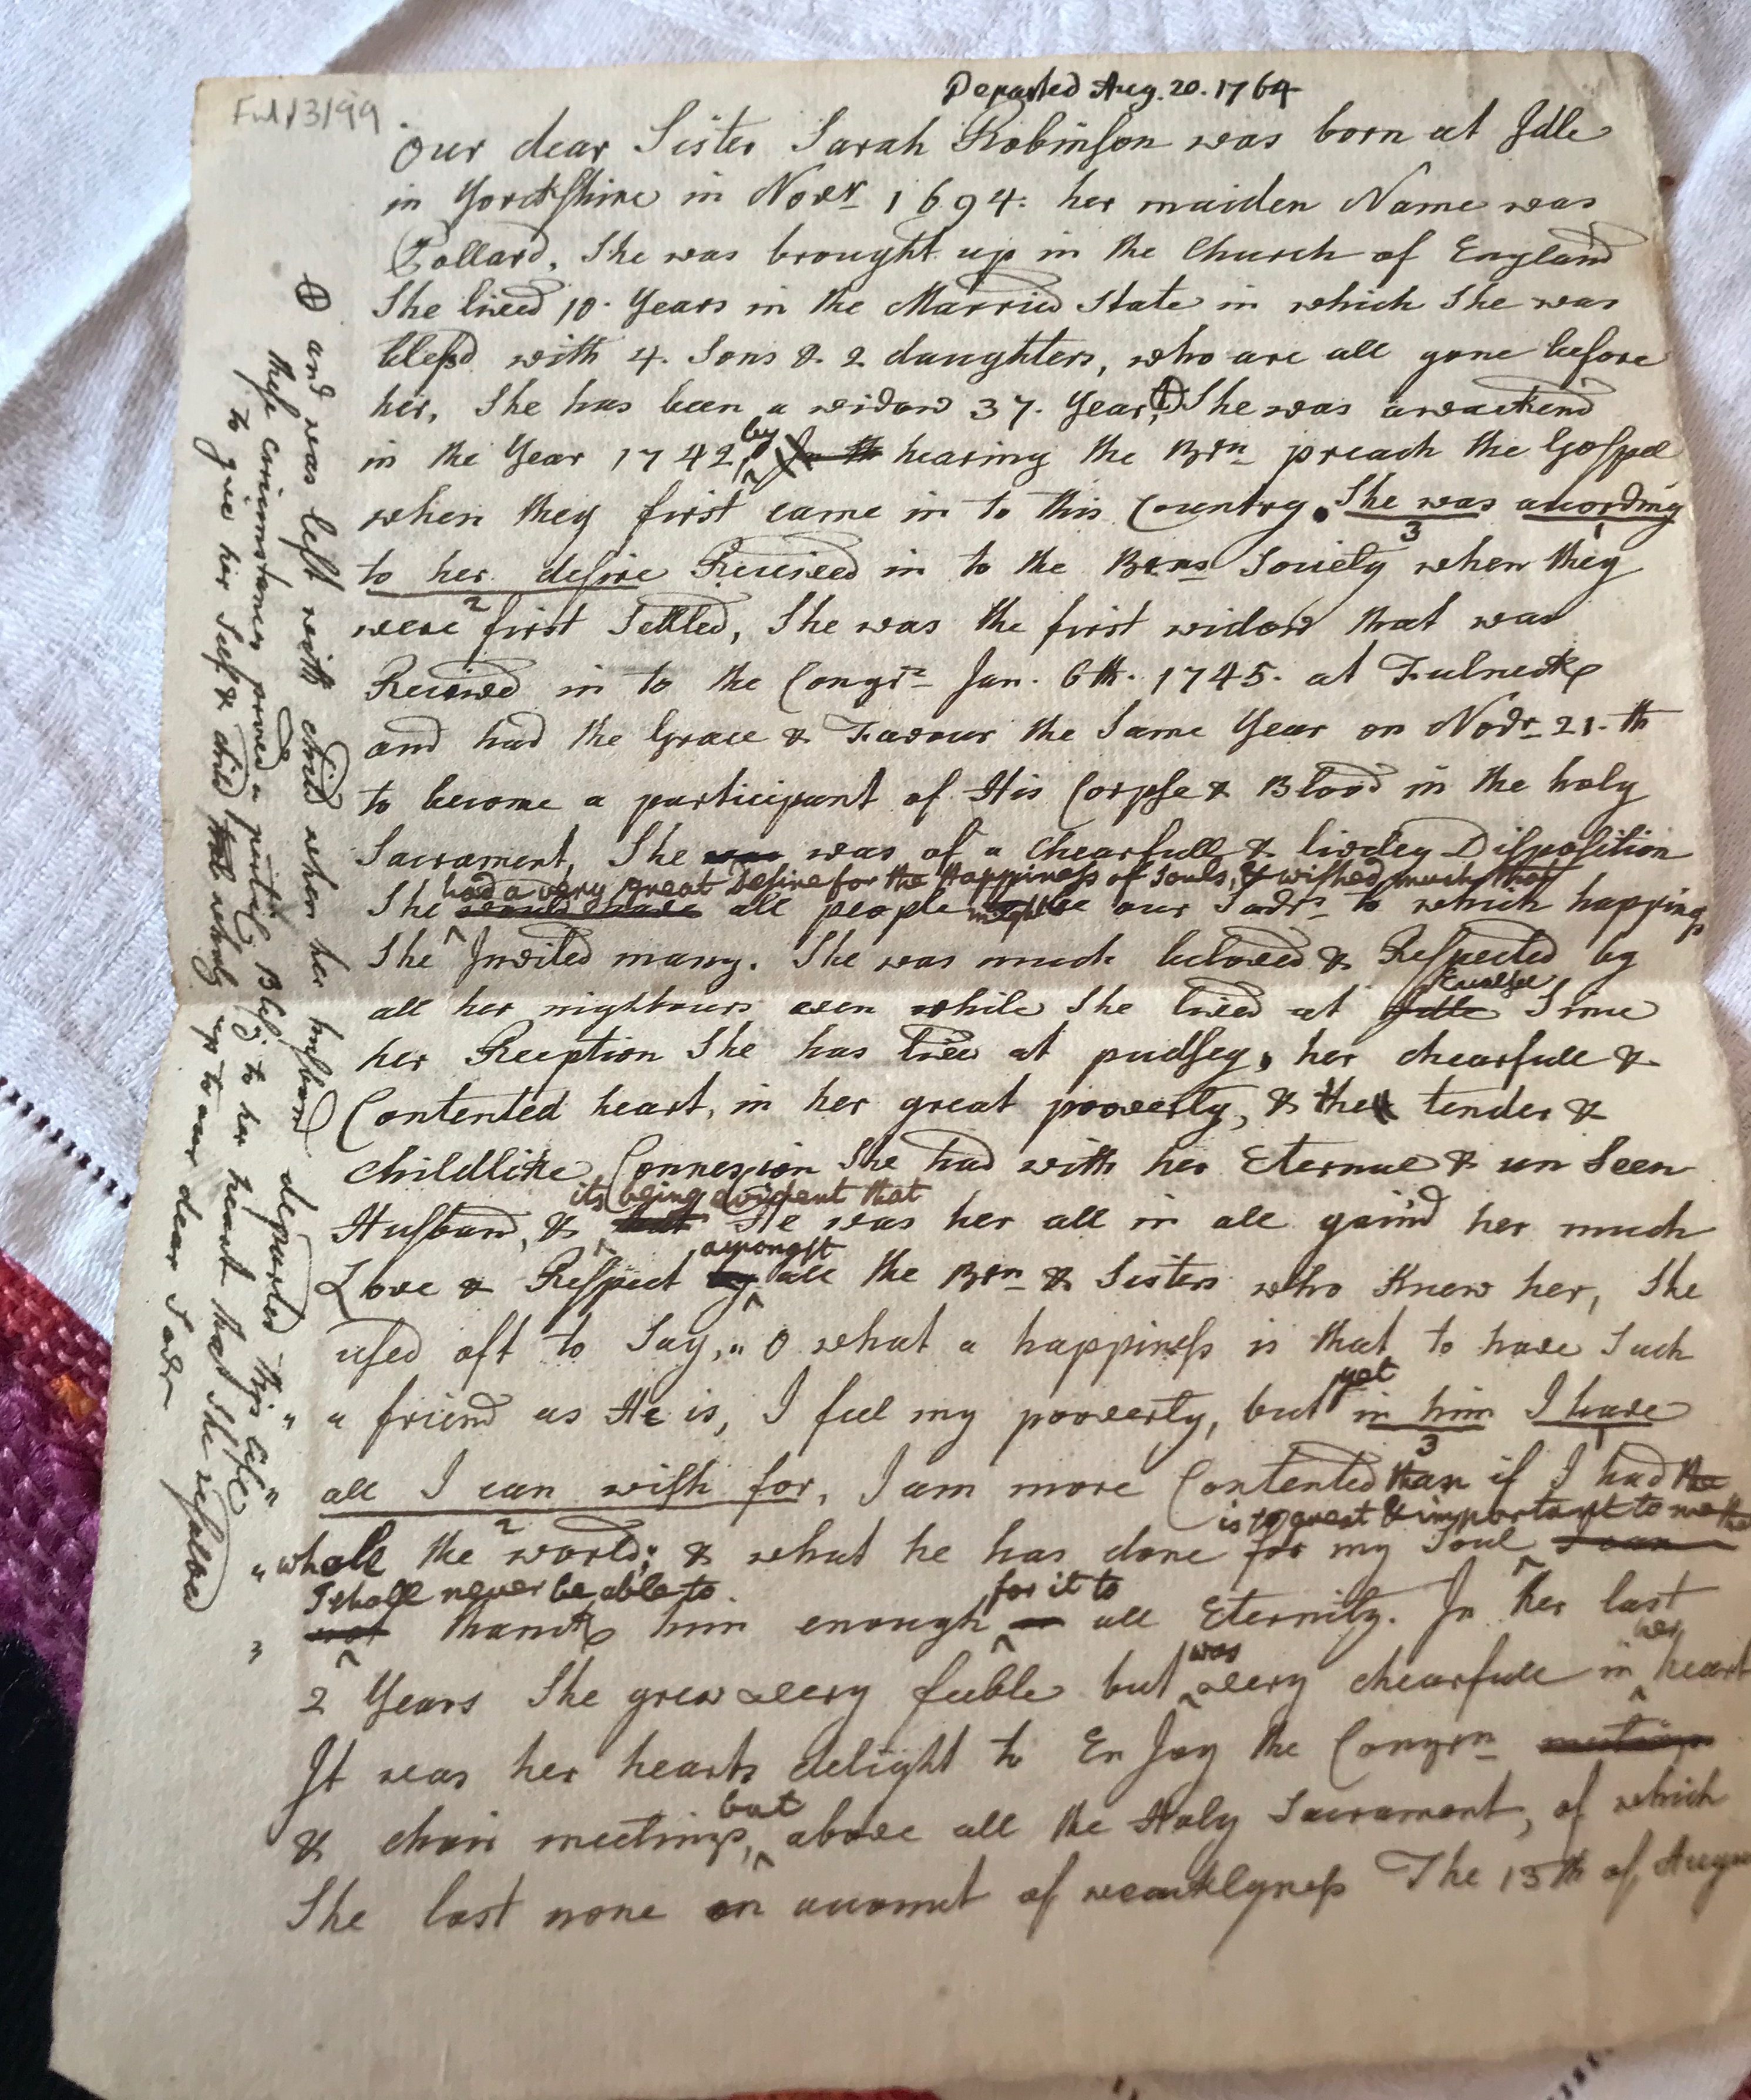 Ful/3/99
Departed Aug. 20. 1764
Our dear Sister Sarah Robinson was born at Idle
in Yorckshire in Novr 1694: her maiden Name was
Pollard, She was brought up in the Church of England
She lived 10. Years in the Married State in which She was
blessd with 4. Sons & 2 daughters, who are all gone before
her, She has been a widow 37. Year, ⊕ She was awackend
by
in the Year 1742, hearing the Brn preach the Gospel
when they first came in to this Country. She was acording
3 1
to her desire Recieved in to the Brns Society when they
2
were first Settled, She was the first widow that was
Recieved in to the Congrn Jan. 6th. 1745. at Fulneck
and had the Grace & Favour the Same Year on Novr 21.th
to become a participant of His Corpse & Blood in the holy
Sacrament, She was was of a chearfull & livley Disposition
had a very great Desire for the Happiness of Souls, & wished much that
She would have all people might be our Savrs to which happiness
She Invited many. She was much beloved & Respected by
all her nighbours even while She lived at Idle Since
her Reception She has live at pudsey, her chearfull &
Contented heart, in her great poverty, & the tender &
childlike Connexion She had with her Eternal & un Seen
its being evident that
Husband, & that He was her all in all gain'd her much
amongst
Love & Respect by all the Brn & Sisters who Knew her, She
used oft to Say, " O what a happiness is that to have Such
yet
" a friend as He is, I feel my poverty, but in him I have
3 1
all I can wish for, I am more Contented than if I had the
2
is so great & important to me that
" whole the world; & what he has done for my Soul I can
I shall never be able to
for it to
" not thank him enough in all Eternity. In her last
was her
2 Years She grew very feeble but very chearfull in heart
It was her hearts delight to En Joy the Congrn meetings
but
& choir meetings, above all the Holy Sacrament, of which
She lost none on acount of weaklyness The 13th of Augu
⊕ and was left with child when her husband departed this life
these ciriumstances proved a perticular Blesg to her heart that She resolved
to give her Self & child wholy up to our dear Savr